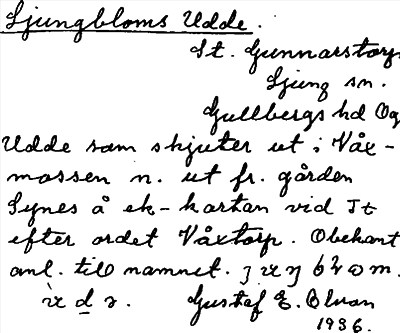 Ljungbloms Udde.
St. Gunnarstorp
Ljung sn.
Gullbergs hd Ög
Udde som skjuter ut i Våx-
mossen n. ut fr. gården
Synes å ek-kartan vid St
efter ordet Våxtorp. Obekant
anl. till namnet.
Gustaf E. Olvan
1936.